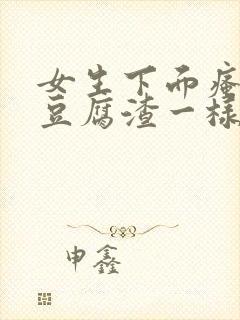 女生下面瘙
豆腐渣一样
申鑫